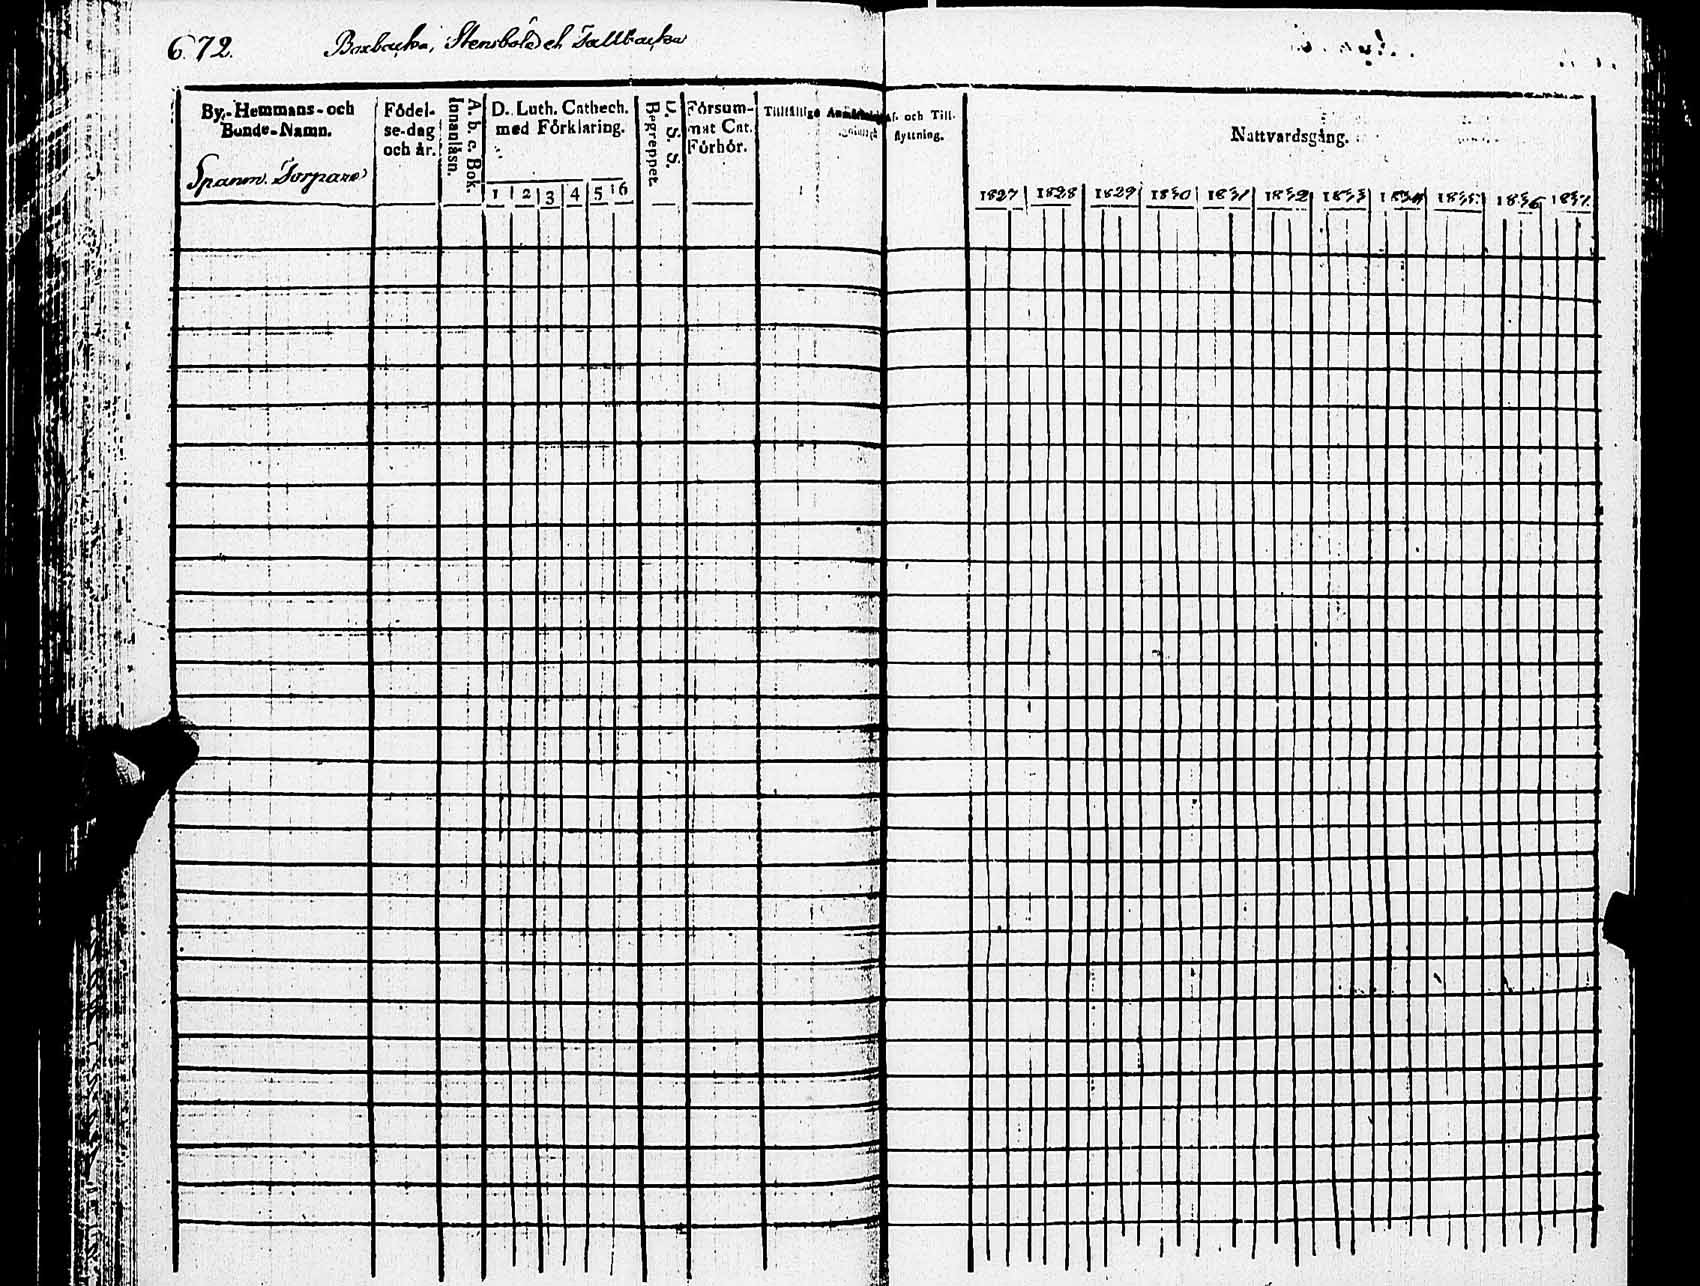 672. Boxbacka, Stensböle et Tallbacka
By,- Hemmans- och
Bonde-Namn.
Spanm. Torpare
Födel-
se-dag
och år.
A. b. c. Bok.
Innanläsn.
D. Luth. Cathech.
med Förklaring.
1 2 3 4 5 6
D. S. S.
Begreppet.
Försum-
mat Cat.
Förhör.
Tillfällige
Af- och Till-
flyttning.
Nattvardsgång.
1827 1828 1829 1830 1831 1832 1833 1834 1835 1836 1837